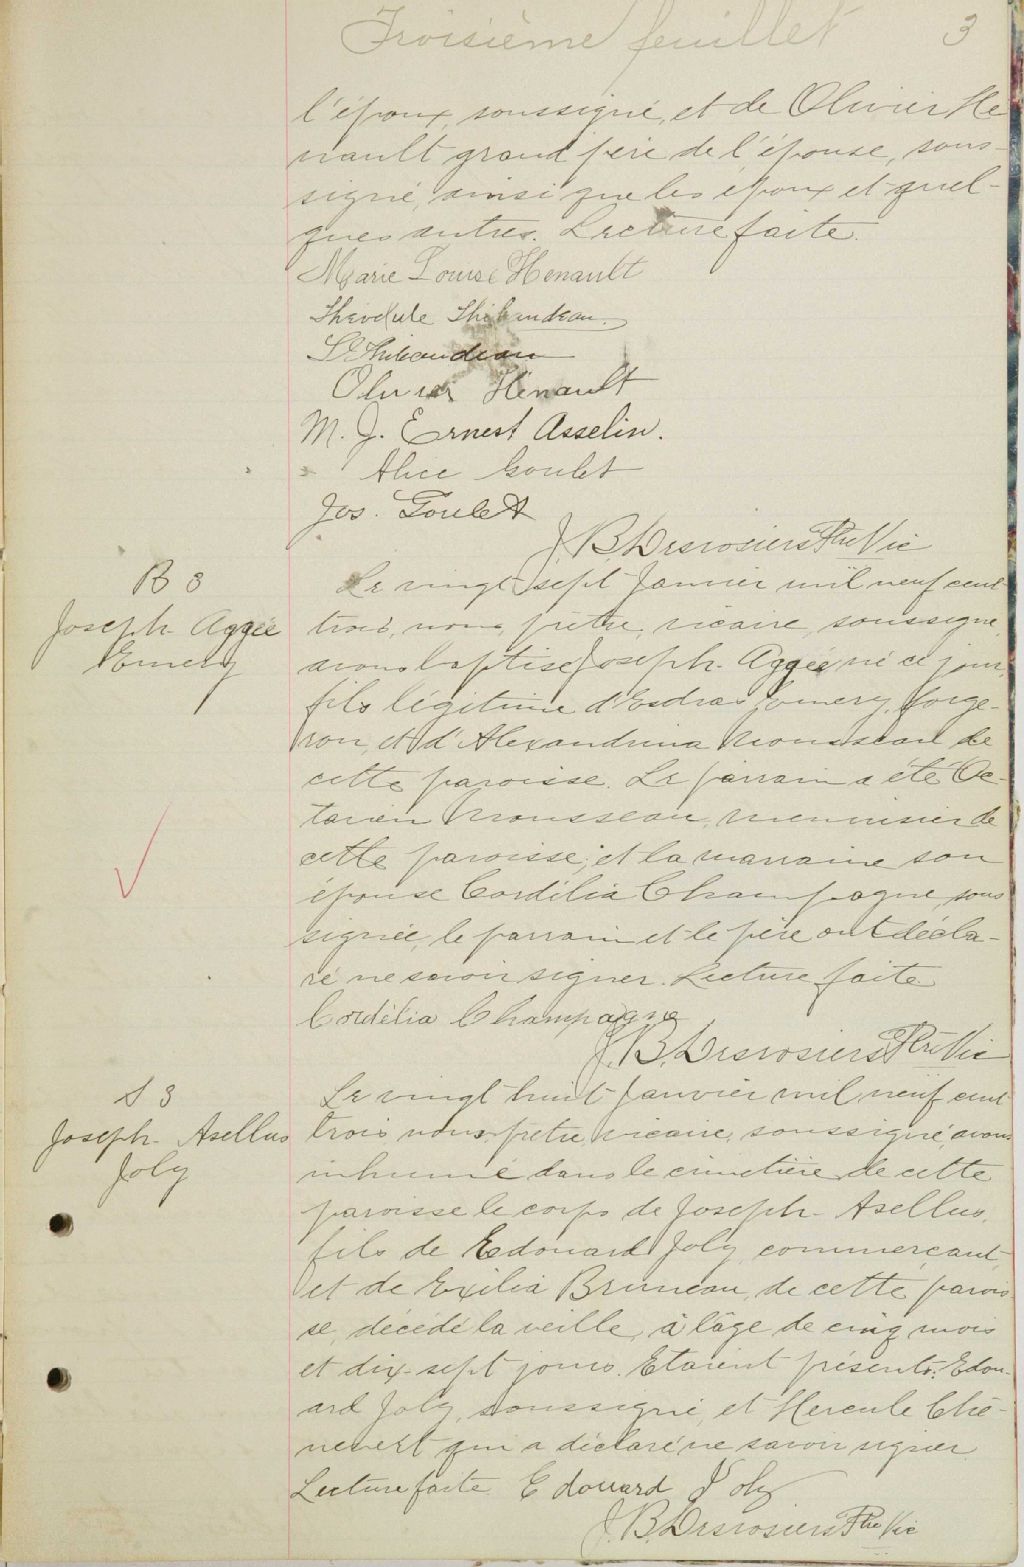 Troisième feuillet 3
l'époux, soussigné, et de Olivier Hé
nault grand père de l'épouse, sous-
signé, ainsi que les époux et quel-
ques autres. Lecture faite.
Marie Louise Henault
Théodule Thibaudeau.
Thibaudeau
Olivier Hénault
M. J. Ernest Asselin.
Alice Goulet
Jos. Goulet
J. B. Desrosiers Ptre Vic
B 3
Joseph Aggée
Emery
Le vingt sept Janvier mil neuf cent
trois, nous, prêtre, vicaire, soussigné,
avons baptisé Joseph-Aggée né ce jour,
fils légitime d'Esdras Emery, forge-
ron, et d'Alexandrina Mousseau de
cette paroisse. Le parrain a été Oc-
tavien Mousseau, menuisier de
cette paroisse, et la marraine son
épouse Cordélia Champagne, sous
signée, le parrain et le père ont décla-
ré ne savoir signer. Lecture faite
Cordélia Champagne
J. B. Desrosiers Ptre Vic
S 3
Joseph-Asellus
Joly
Le vingt huit Janvier mil neuf cent
trois nous, prêtre, vicaire, soussigné, avons
inhumé dans le cimetière de cette
paroisse le corps de Joseph-Asellus,
fils de Edouard Joly, commerçant,
et de Exilia Bruneau, de cette parois
se, décédé la veille, à l'âge de cinq mois
et dix-sept jours. Etaient présents: Edou-
ard Joly, soussigné, et Hercule Ché-
nevert qui a déclaré ne savoir signer
Lecture faite Edouard Joly
J. B. Desrosiers Ptre Vic